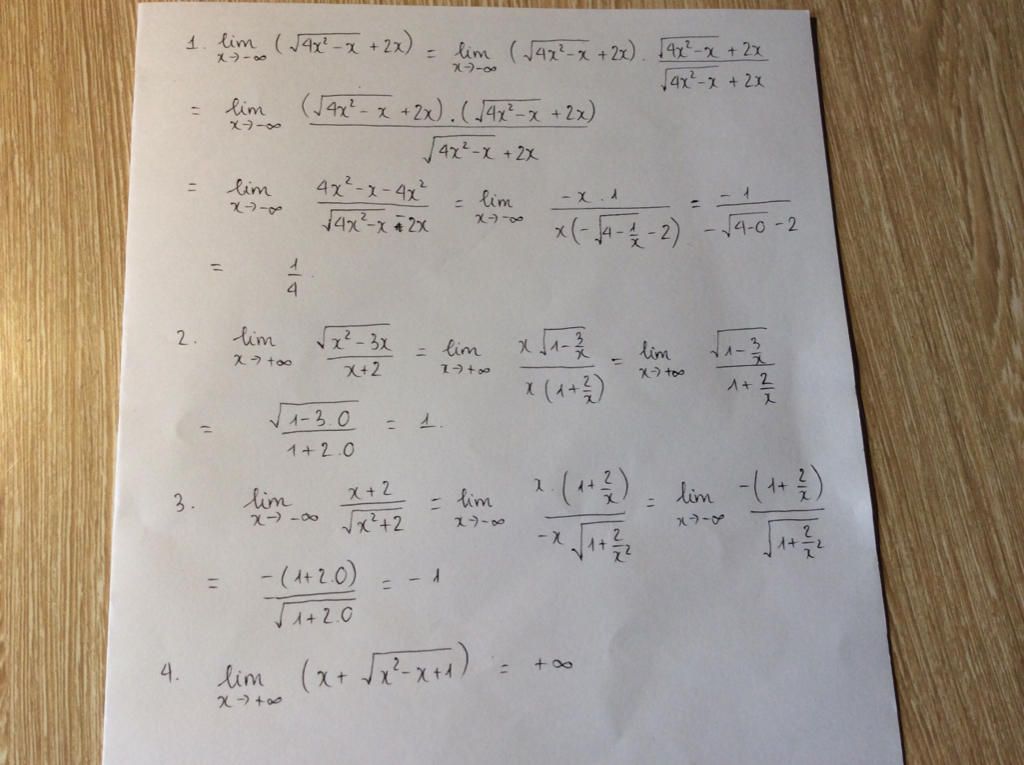 1. lim x→-∞ (√(4x²-x) + 2x) = lim x→-∞ (√(4x²-x) + 2x) . (√(4x²-x) + 2x)/(√(4x²-x) + 2x)
= lim x→-∞ ((√(4x²-x) + 2x) . (√(4x²-x) + 2x))/(√(4x²-x) + 2x)
= lim x→-∞ (4x²-x-4x²)/(√(4x²-x) - 2x) = lim x→-∞ (-x . 1)/(x(-√(4-1/x) - 2)) = (-1)/(-√(4-0) - 2)
= 1/4.
2. lim x→+∞ √(x²-3x)/(x+2) = lim x→+∞ (x√(1-3/x))/(x(1+2/x)) = lim x→+∞ √(1-3/x)/(1+2/x)
= √(1-3.0)/(1+2.0) = 1.
3. lim x→-∞ (x+2)/√(x²+2) = lim x→-∞ (x.(1+2/x))/(-x√(1+2/x²)) = lim x→-∞ (-(1+2/x))/√(1+2/x²)
= (-(1+2.0))/√(1+2.0) = -1
4. lim x→+∞ (x+√(x²-x+1)) = +∞